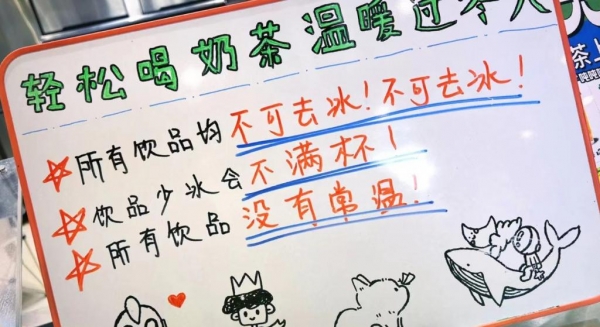 轻松喝奶茶温暖过冬天
所有饮品均不可去冰!不可去冰!
饮品少冰会不满杯!
所有饮品没有常温!
茶上